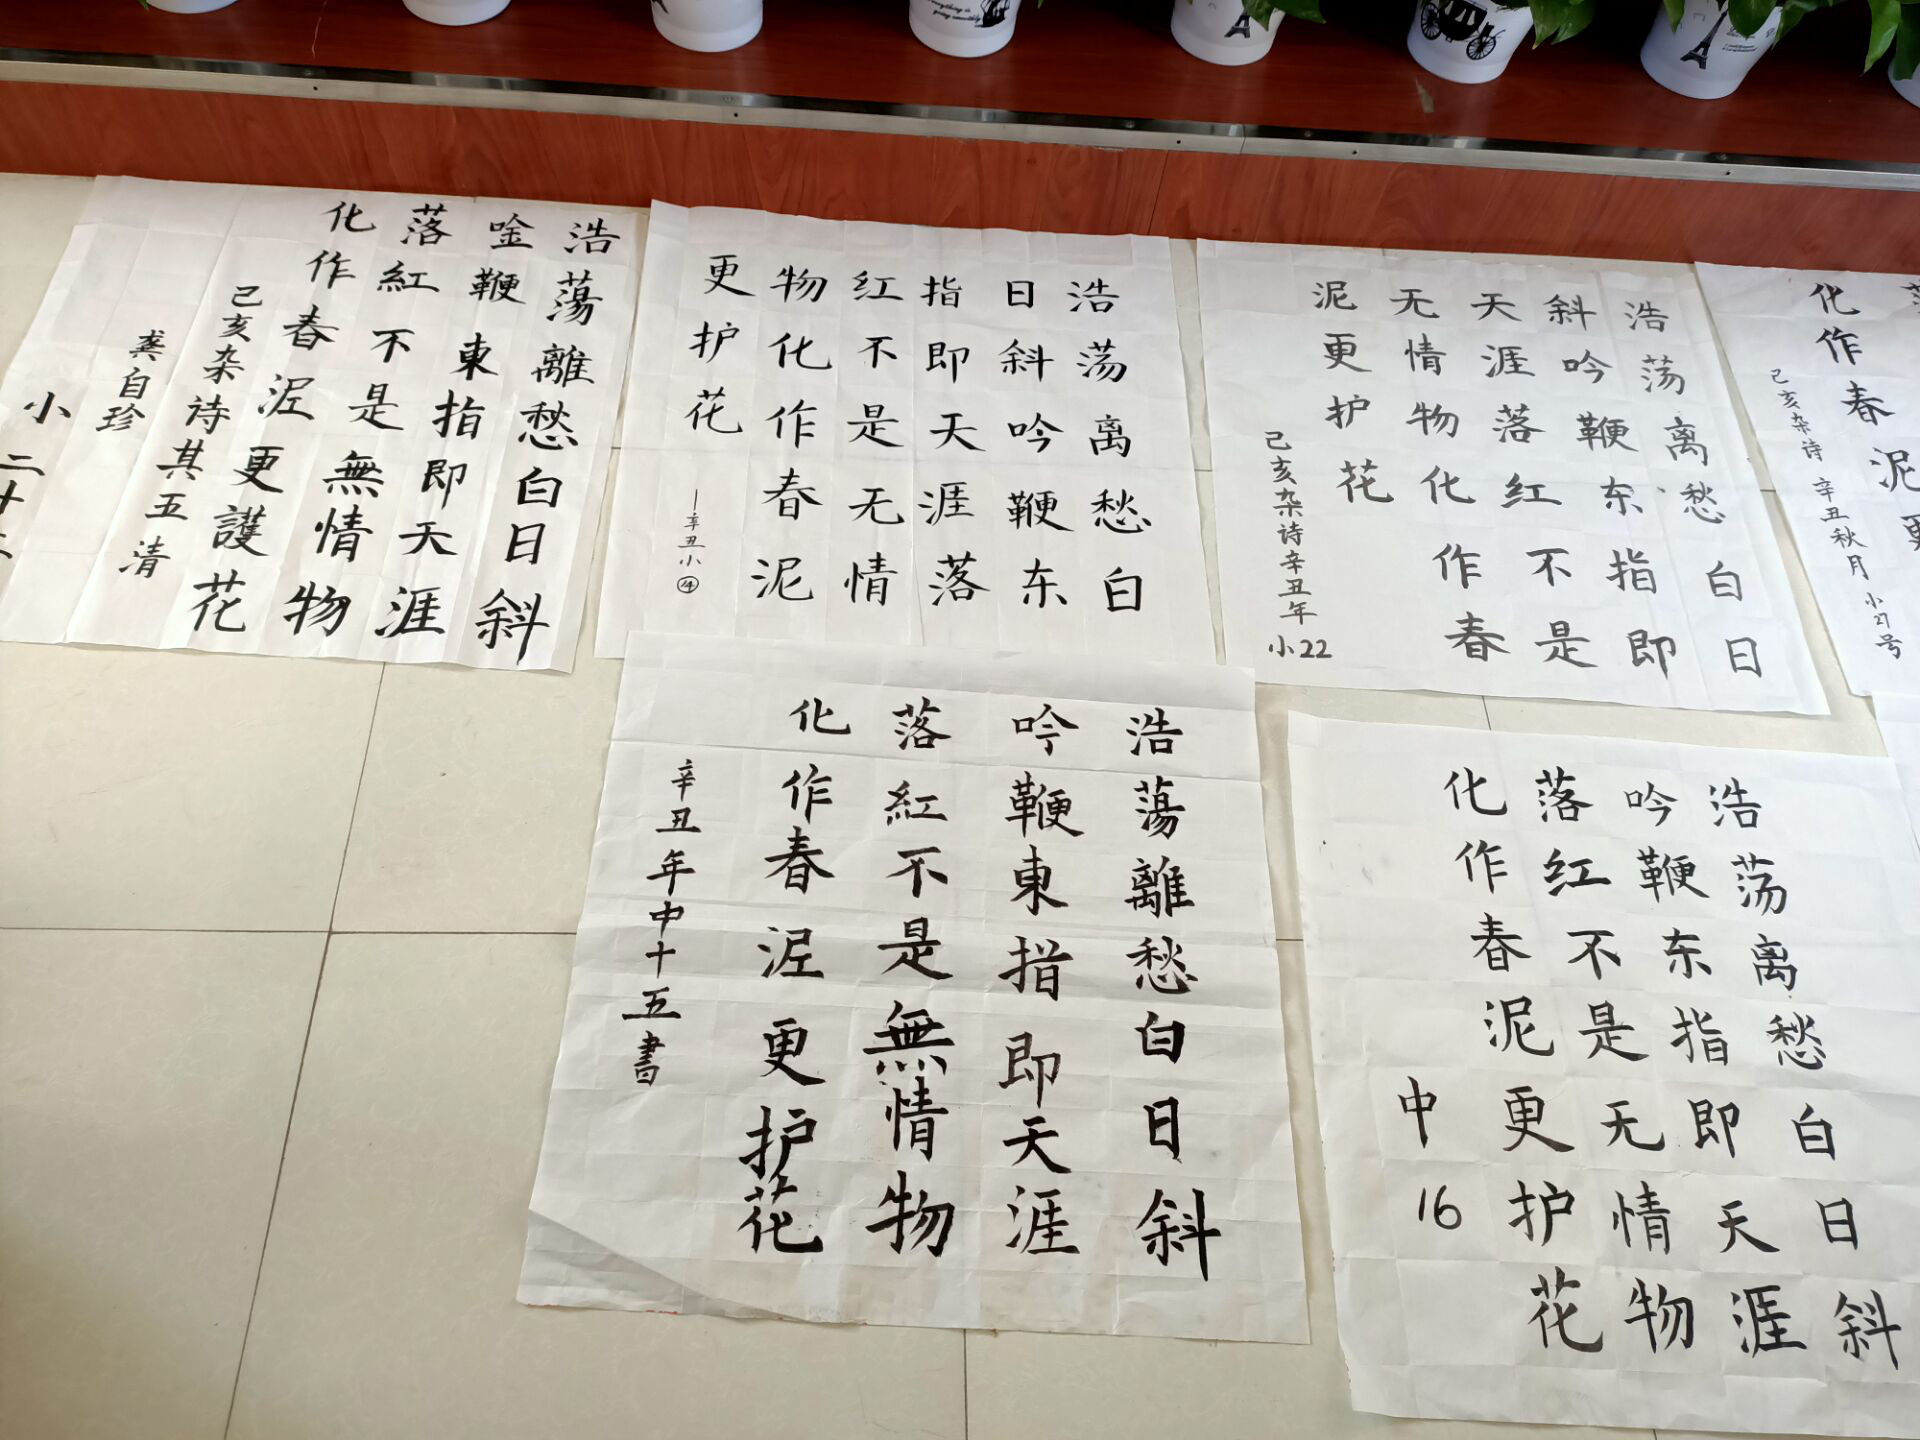 浩蕩離愁白日斜
唫鞭東指即天涯
落紅不是無情物
化作春泥更護花
己亥杂诗其五清
龚自珍
小二十
浩荡离愁白
日斜吟鞭东
指即天涯落
红不是无情
物化作春泥
更护花
—辛丑小⑭
浩荡离愁白日
斜吟鞭东指即
天涯落红不是
无情物化作春
泥更护花
己亥杂诗辛丑年
小22
化作春泥更
己亥杂诗 辛丑秋月 小27号
浩蕩離愁白日斜
吟鞭東指即天涯
落紅不是無情物
化作春泥更护花
辛丑年中十五書
浩荡离愁白日斜
吟鞭东指即天涯
落红不是无情物
化作春泥更护花
中16